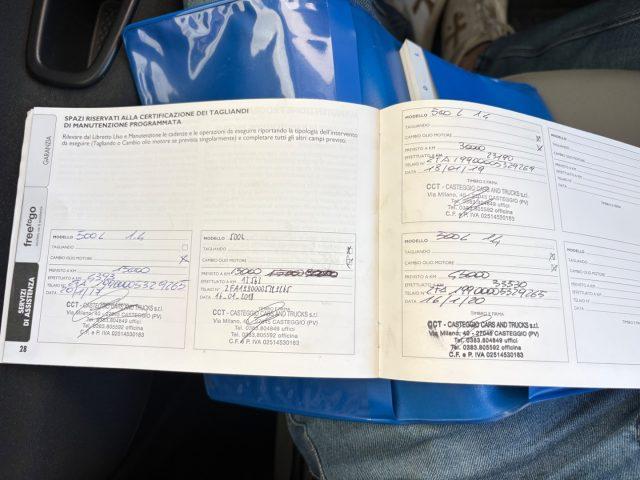 SPAZI RISERVATI ALLA CERTIFICAZIONE DEI TAGLIANDI
DI MANUTENZIONE PROGRAMMATA
Rilevare dal Libretto Uso e Manutenzione le cadenze e le operazioni da eseguire riportando la tipologia dell'intervento
da eseguire (Tagliando o Cambio olio motore se previsto singolarmente) e completare tutti gli altri campi previsti.
GARANZIA
freetogo
SERVIZI
DI ASSISTENZA
28
MODELLO 500L 1.4
TAGLIANDO
CAMBIO OLIO MOTORE
PREVISTO A KM 15000
EFFETTUATO A KM 6393
TELAIO N°
DATA
TIMBRO E FIRMA
CCT - CASTEGGIO CARS AND TRUCKS s.r.l.
Via Milano, 40 - 27045 CASTEGGIO (PV)
Tel. 0383.804849 uffici
Tel. 0383.805592 officina
C.F. e P. IVA 02514530183
MODELLO 500L
TAGLIANDO
CAMBIO OLIO MOTORE
PREVISTO A KM 15000
EFFETTUATO A KM
TELAIO N°
DATA 16.01.2018
CCT - CASTEGGIO CARS AND TRUCKS s.r.l.
Via Milano, 40 - 27045 CASTEGGIO (PV)
Tel. 0383.804849 uffici
Tel. 0383.805592 officina
C.F. e P. IVA 02514530183
MODELLO 500L 1.4
TAGLIANDO
CAMBIO OLIO MOTORE
PREVISTO A KM 30000
EFFETTUATO A KM 23190
TELAIO N° ZFA19900005329265
DATA 18/01/19
TIMBRO E FIRMA
CCT - CASTEGGIO CARS AND TRUCKS s.r.l.
Via Milano, 40 - 27045 CASTEGGIO (PV)
Tel. 0383.804849 uffici
Tel. 0383.805592 officina
C.F. e P. IVA 02514530183
MODELLO 500L 1.4
TAGLIANDO
CAMBIO OLIO MOTORE
PREVISTO A KM
EFFETTUATO A KM 33320
TELAIO N° ZFA19900005329265
DATA 16/1/20
TIMBRO E FIRMA
CCT - CASTEGGIO CARS AND TRUCKS s.r.l.
Via Milano, 40 - 27045 CASTEGGIO (PV)
Tel. 0383.804849 uffici
Tel. 0383.805592 officina
C.F. e P. IVA 02514530183
MODELLO
TAGLIANDO
CAMBIO OLIO MOTORE
PREVISTO A KM
EFFETTUATO A KM
TELAIO N°
DATA
MODELLO
TAGLIANDO
CAMBIO OLIO MOTORE
PREVISTO A KM
EFFETTUATO A KM
TELAIO N°
DATA